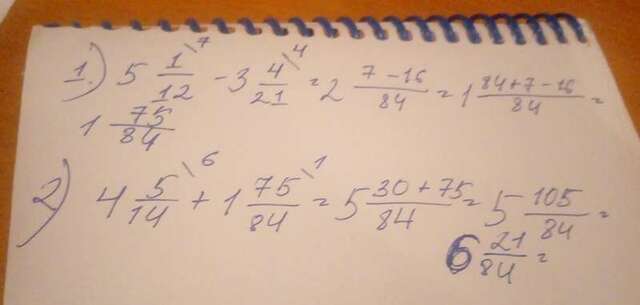 1.) 5 1/12 \7 - 3 4/21 \4 = 2 7-16/84 = 1 84+7-16/84 =
1 75/84
2) 4 5/14 \6 + 1 75/84 \1 = 5 30+75/84 = 5 105/84 =
6 21/84 =